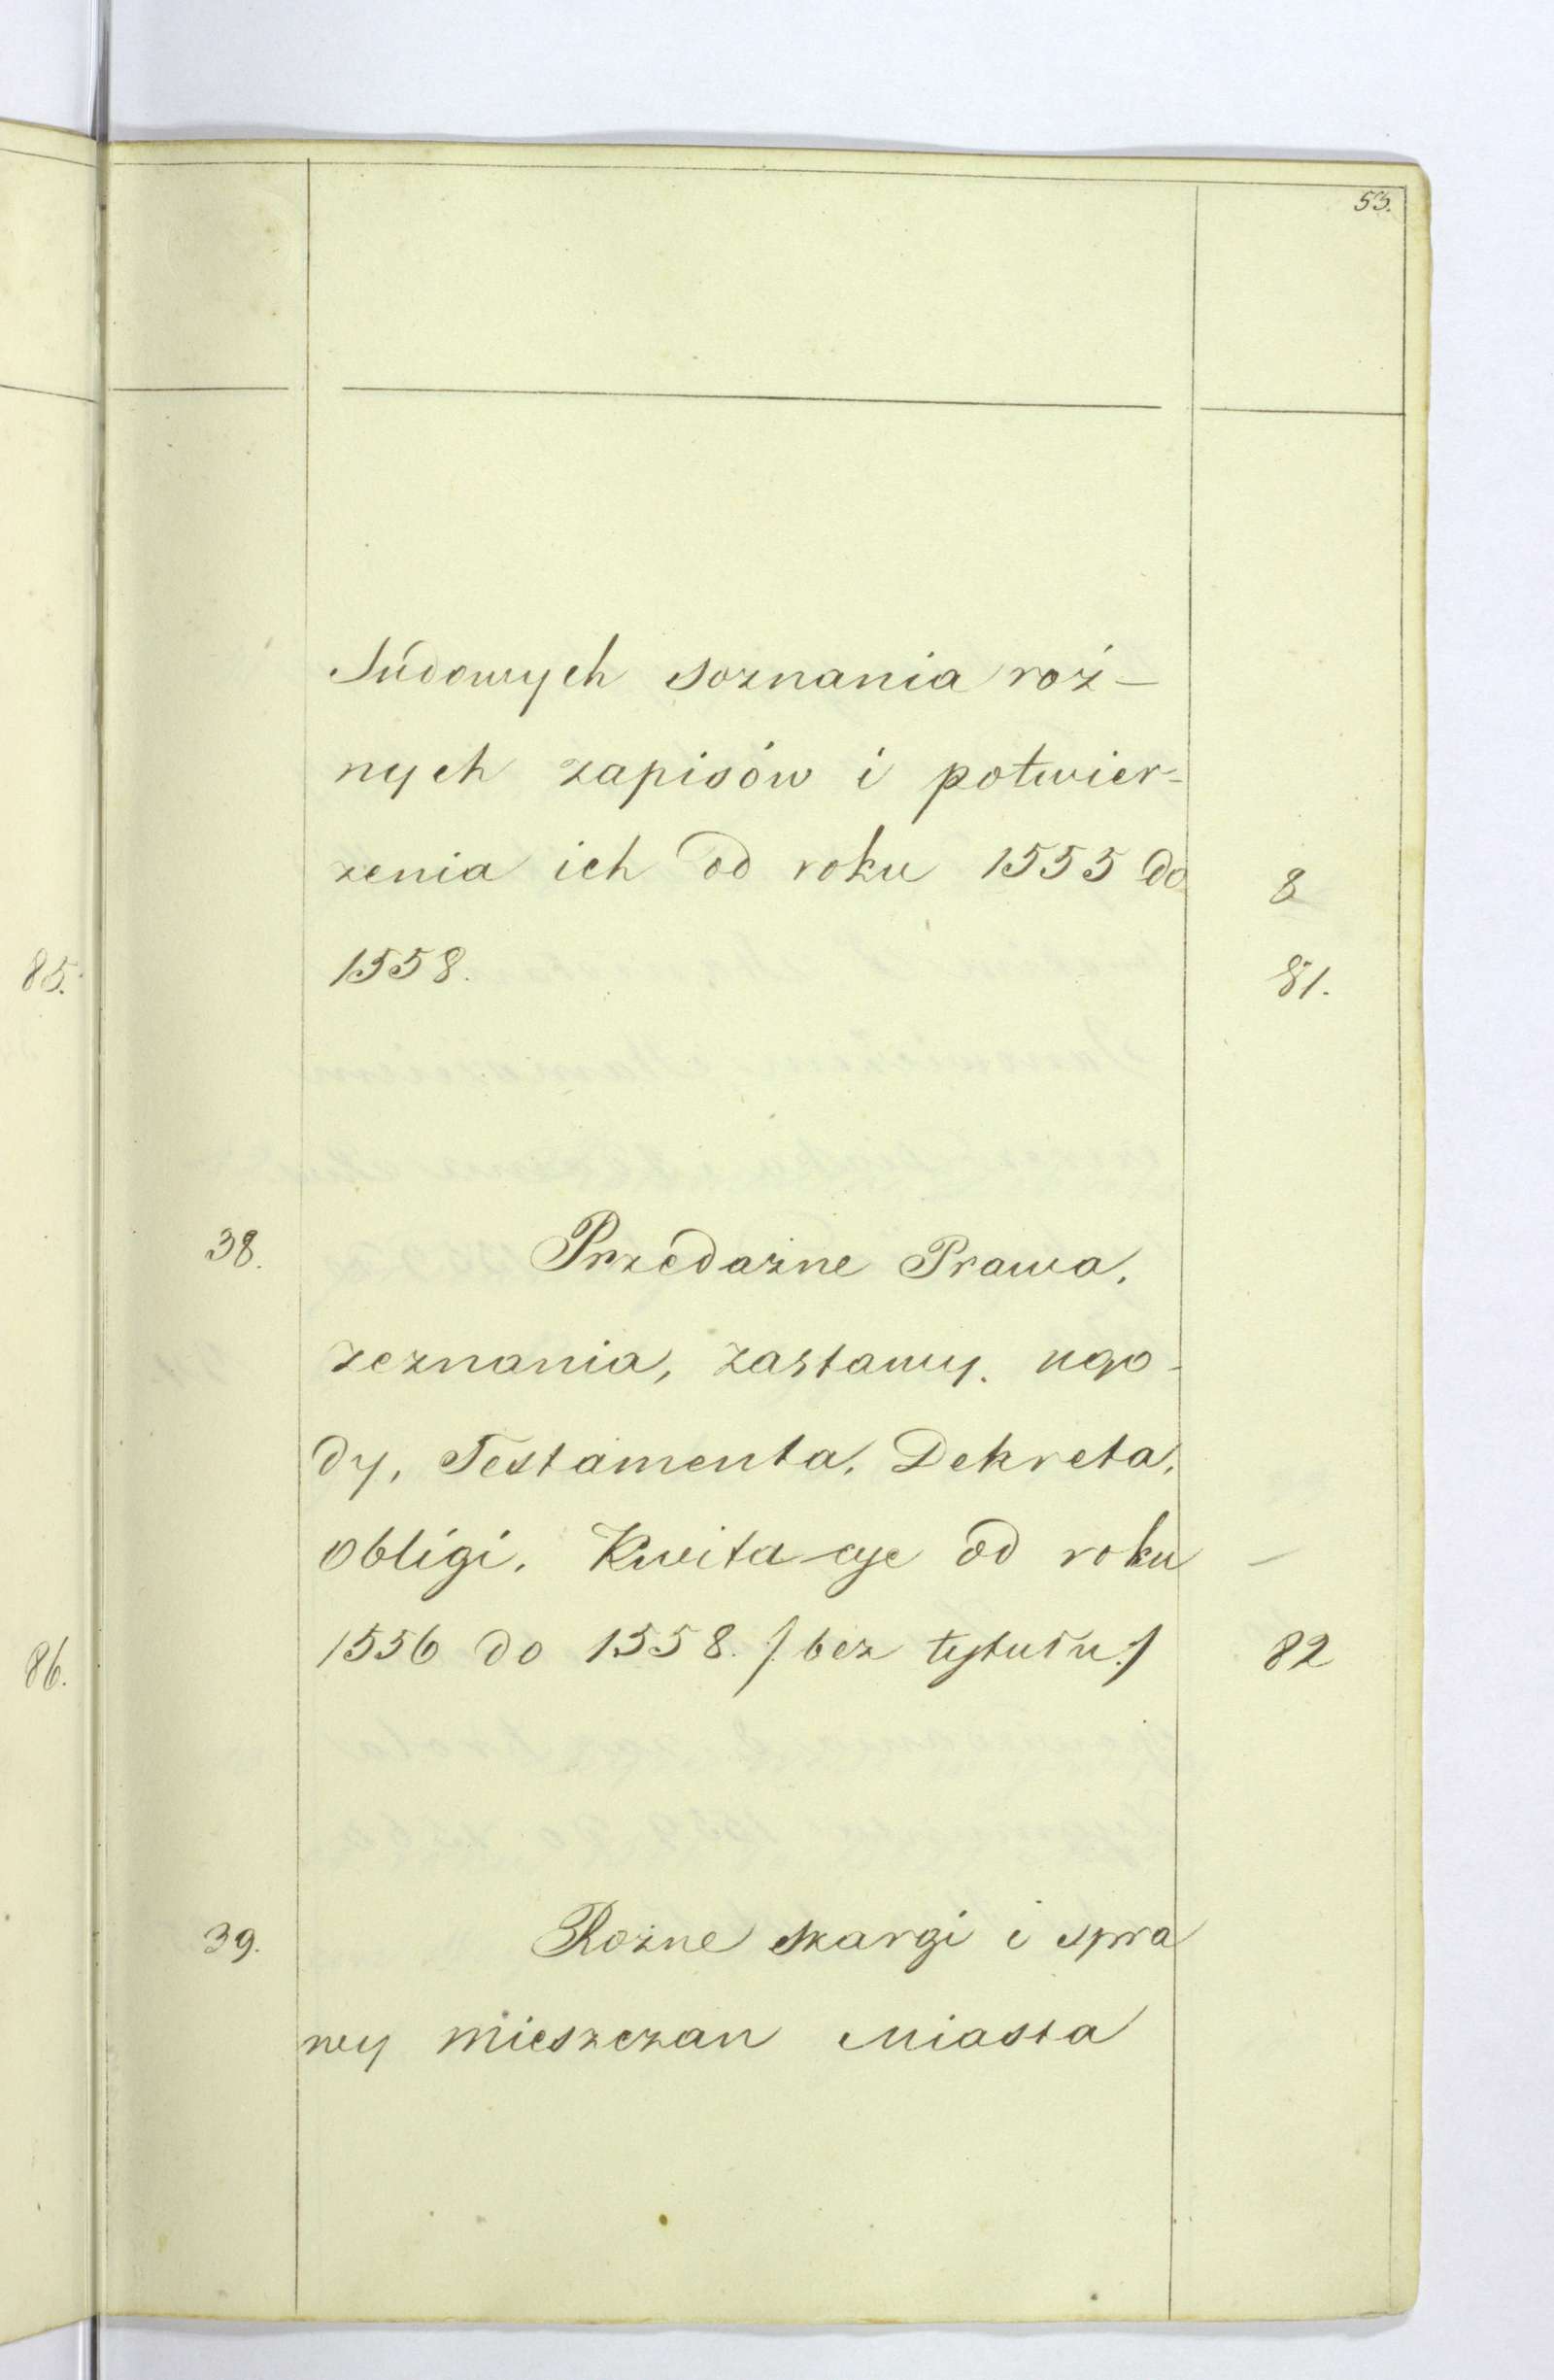 53.
Sudowych soznania roż-
nych zapisów i potwier-
zenia ich od roku 1555 do
8
1558.
81.
85.
38.
Przedażne Prawa,
zeznania, zastawy, ugo-
dy, Testamenta, Dekreta,
obligi, Kwitacye od roku
—
1556 do 1558. /: bez tytułu :/
82
86.
39.
Rożne skargi i spra
wy mieszczan Miasta